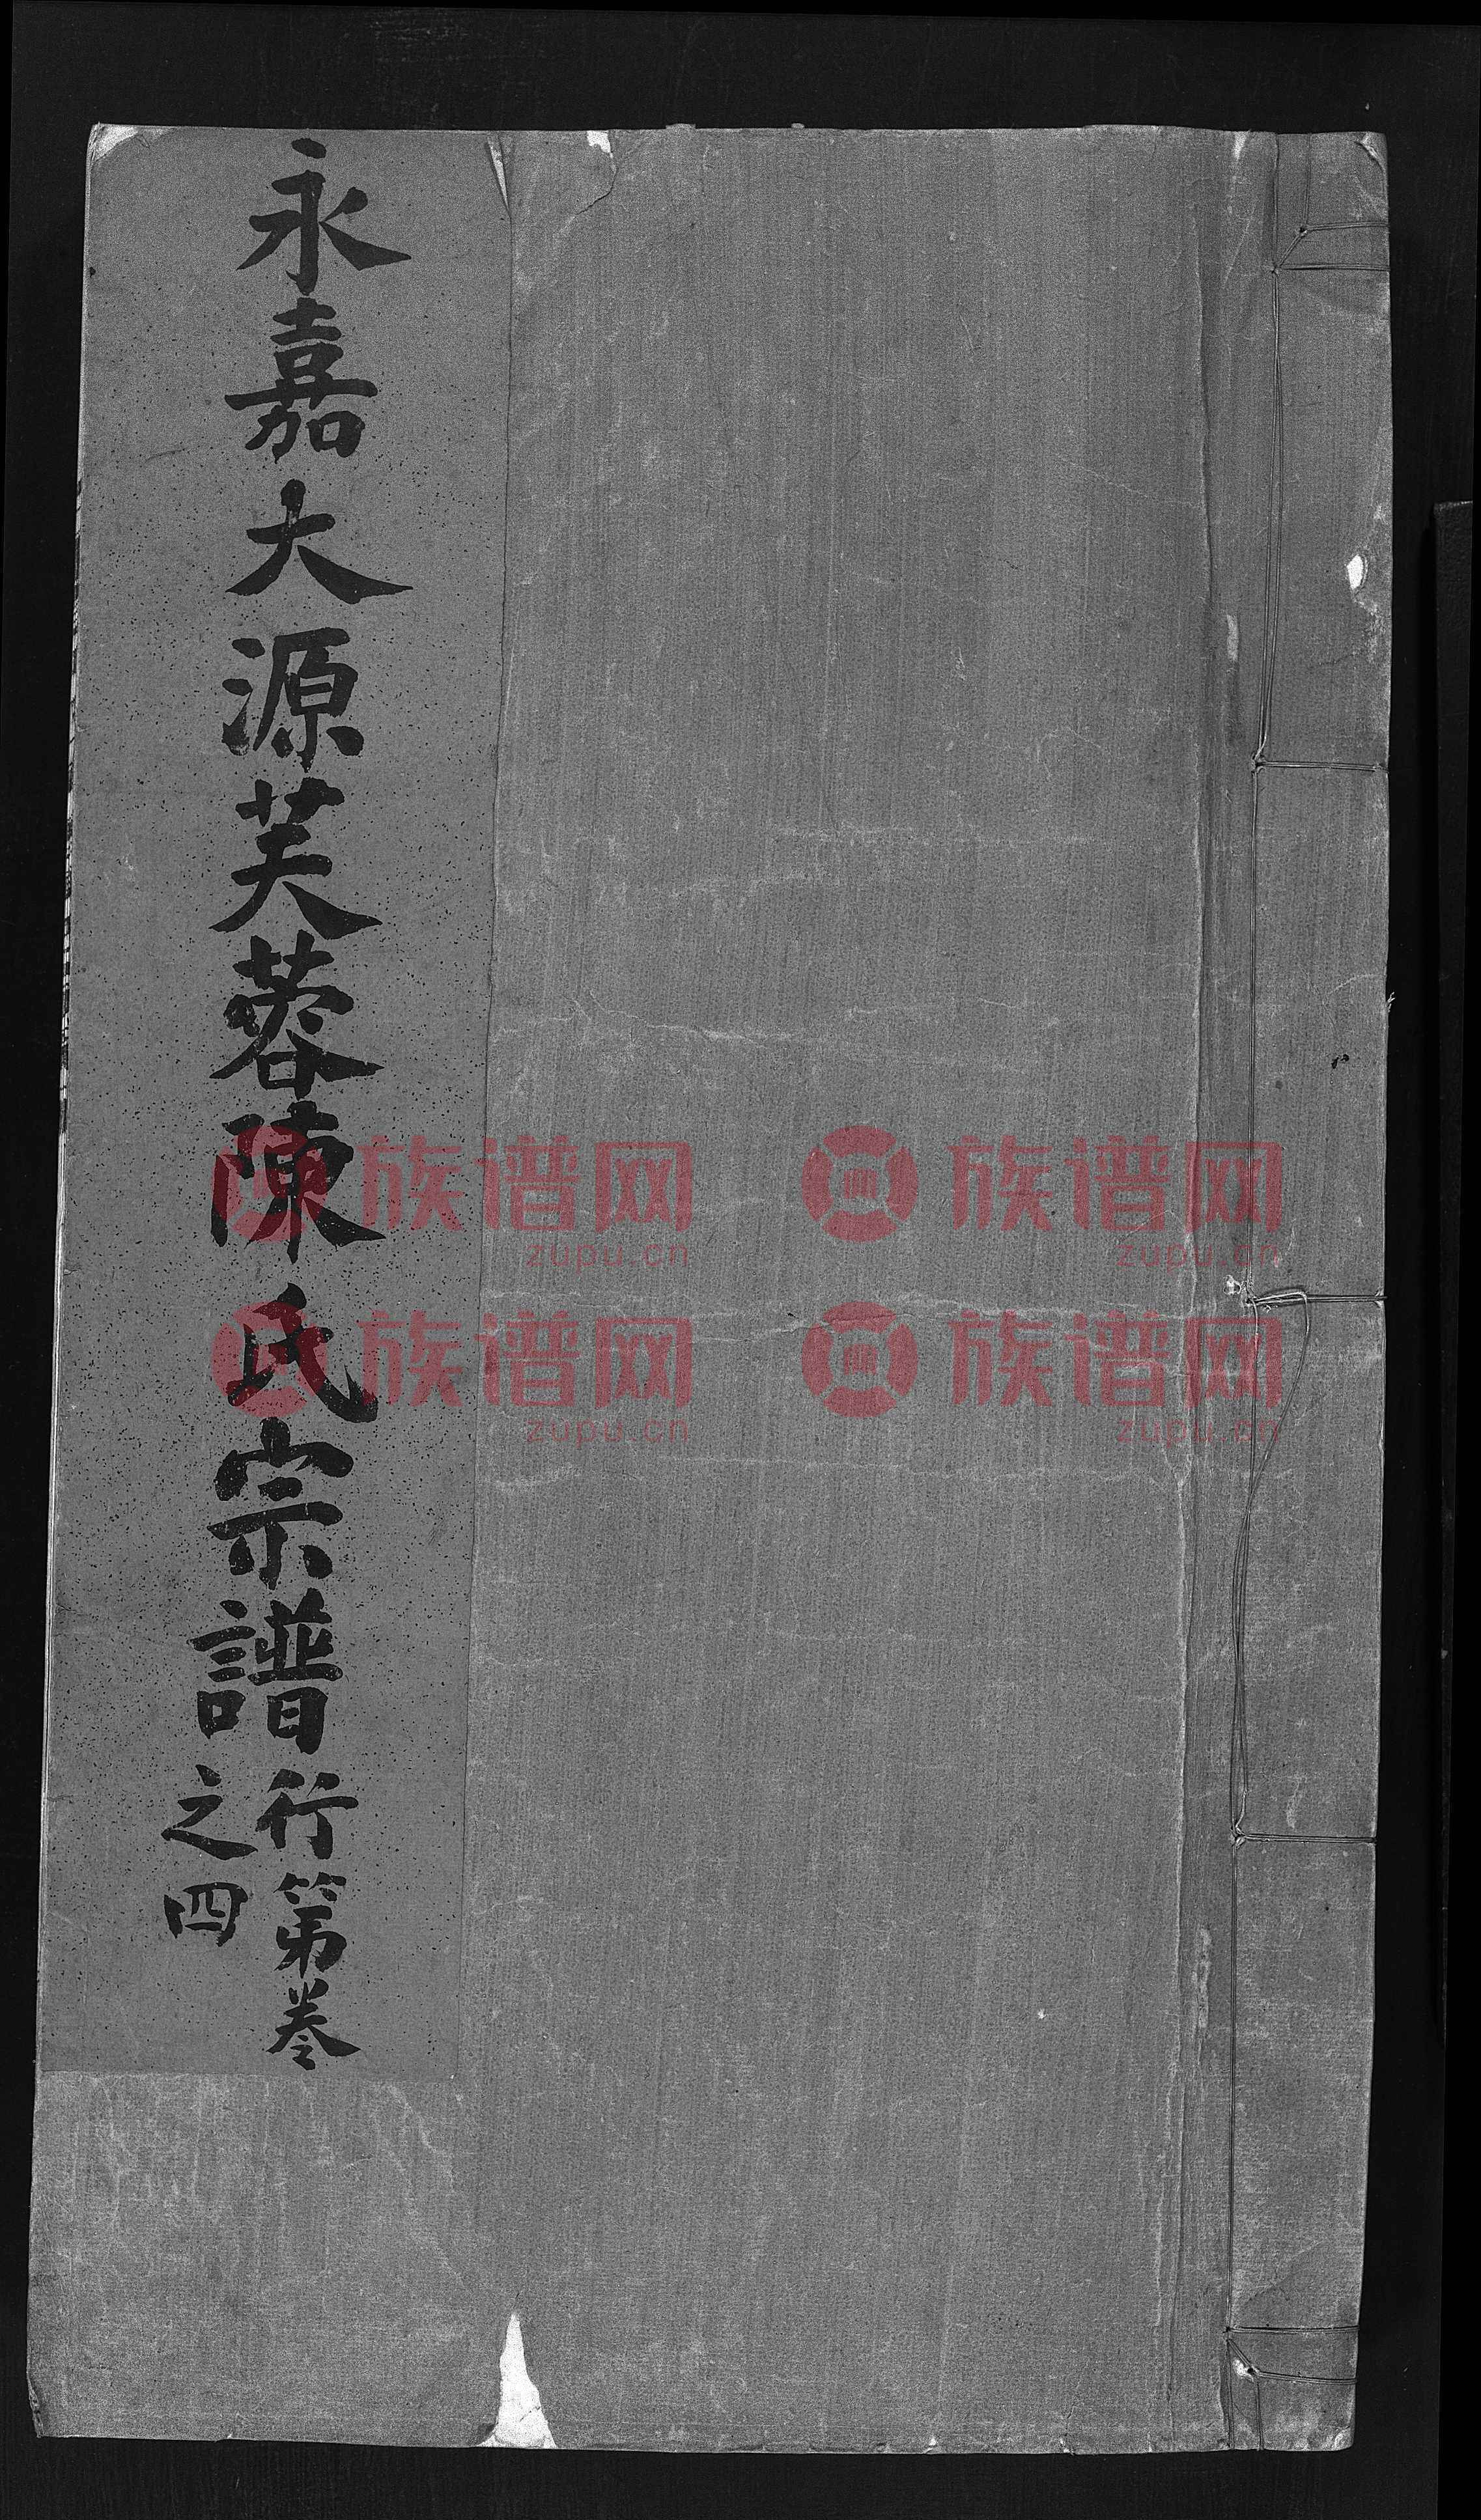 永嘉大源芙蓉陳氏宗譜
行第卷
之四
族谱网 族谱网
zupu.cn zupu.cn
族谱网 族谱网
zupu.cn zupu.cn